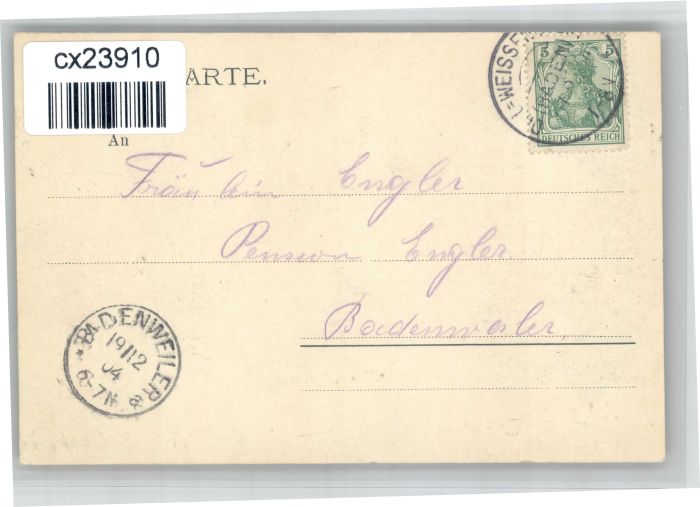 cx23910
ARTE.
An
Fräulein Engler
Pension Engler
Badenweiler
5 5
DEUTSCHES REICH
BADENWEILER
19/12
04
6-7N.